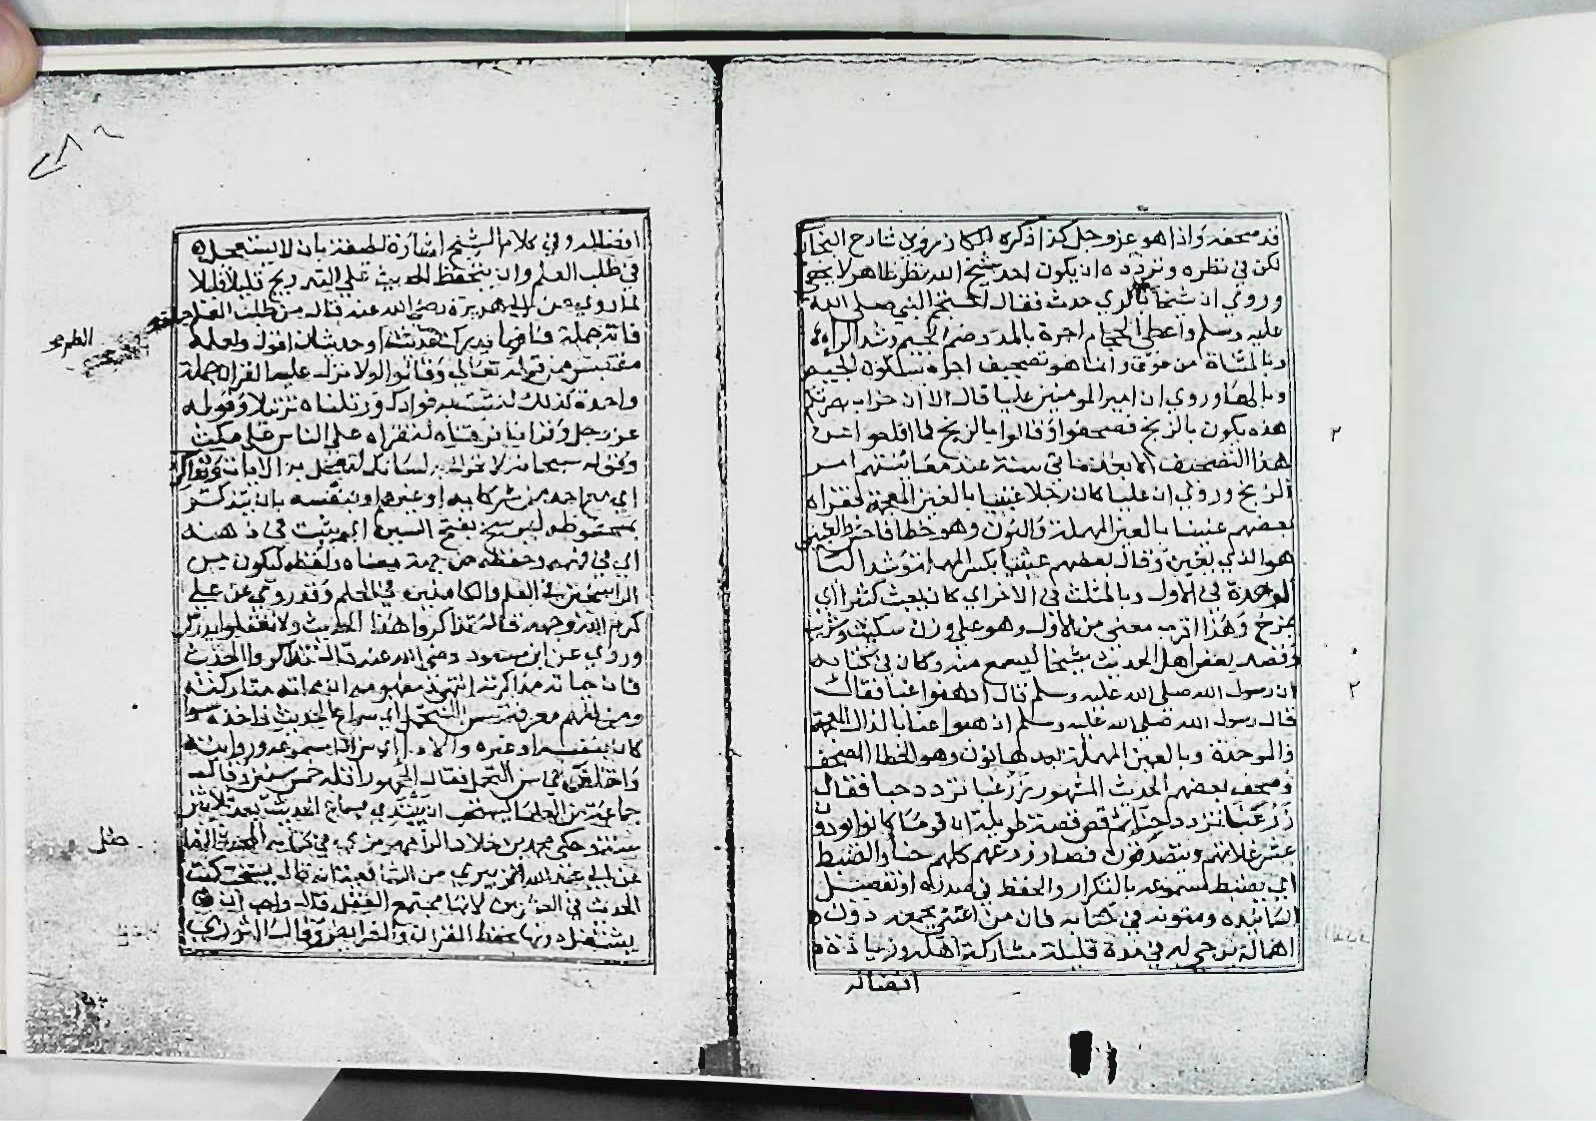 قد صحفه واذا هو عز وجل كذا ذكره الكازروني شارح البخاري
لكن في نظره وتردده ان يكون احد شيخ الله نظر ظاهر لا يخفى
وروي ان شيخا بالري حدث فقال احتجم النبي صلى الله
عليه وسلم واعطى الحجام اجرة بالمد وضم الجيم وشد الراء
وبالمثناة من فوق وانما هو تصحيف اجره بسكون الجيم
وبالهاء وروي ان امير المومنين عليا قال الا ان خراب بصرتكم
هذه يكون بالريح فصحفوا وقالوا بالزنج فما اقلعوا عن
هذا التصحيف الا بعد مائتي سنة عند معاينتهم امر
الزنج وروي ان عليا كان رجلا بالغين المعجمة فقراه
بعضهم عنينا بالعين المهملة والنون وهو خطا فاحش
هو الذي وقال بعضهم بكسر المهملة وشد التا
في الاول وبالمثلث في الاخر اي كان يعبث كثيرا اي
يمزح وهذا اقرب معنى من الاول وهو على وزن سكيت وشريب
وقصد بعض اهل الحديث شيخا ليسمع منه وكان في كتابه
ان رسول الله صلى الله عليه وسلم قال ادهنوا غبا فقال
قال رسول الله صلى الله عليه وسلم اذهبوا عنا بالذال المعجمة
والموحدة وبالعين المهملة بعدها نون وهو الخطا المصحف
وصحف بعضهم الحديث المشهور زر غبا تزدد حبا فقال
زرعنا تزدد حنا ثم قص قصة طويلة ان قوما كانوا لا يودون
عشر غلاتهم ولا يتصدقون فصار زرعهم كلهم حنا والضبط
اي يضبط لمسموعه بالتكرار والحفظ في صدره او تفصيل
اسانيده ومتونه في كتابه فان من اعتنى بجمعه دون
اهماله يرجى له في مدة قليلة مشاركة اهله وزيادة
افضاله
افضاله وفي كلام الشيخ اشارة لطيفة بان لا يستعجل
في طلب العلم وان يتحفظ الحديث على التدريج قليلا قليلا
لما روي عن ابي هريرة رضي الله عنه قال من طلب العلم جملة
فاته جملة وانما يدرك حديثا وحديثان اقول ولعله
مقتبس من قوله تعالى وقالوا لولا نزل عليه القران جملة
واحدة كذلك لنثبت به فوادك ورتلناه ترتيلا وقوله
عز وجل وقرانا فرقناه لتقراه على الناس على مكث
وكقوله سبحانه لا تحرك به لسانك لتعجل به الايات ويذاكر
اي مع احد من شركائه او غيرهم او بنفسه بان يتذكر
بمحفوظه ليرسخ بفتح السين اي يثبت في ذهنه
اي في فهمه وحفظه من جهة معناه ولفظه ليكون من
الراسخين في العلم والكاملين في الحلم وقد روي عن علي
كرم الله وجهه قال تذاكروا هذا الحديث ولا تغفلوا يدرس
وروي عن ابن مسعود رضي الله عنه قال تذاكروا الحديث
فان حياته مذاكرته انتهى ومفهومه ان مماته متاركته
ومن المهم معرفة سن التحمل اي سماع الحديث واخذه سوا
كان بنفسه او غيره والاداء اي سن اداء مسموعه وروايته
واختلف في سن التحمل فقال الجمهور اقله خمس سنين وقالت
جماعة من العلما يستحب ان يبتدي بسماع الحديث بعد ثلاثين
سنة وحكى محمد بن خلاد الرامهرمزي في كتابه المحدث الفاصل
عن ابي عبد الله الزبيري من الشافعية انه قال يستحب كتب
الحديث في العشرين لانها مجتمع العقل قال واحب ان
يشتغل دونها بحفظ القران والفرايض وقال الثوري